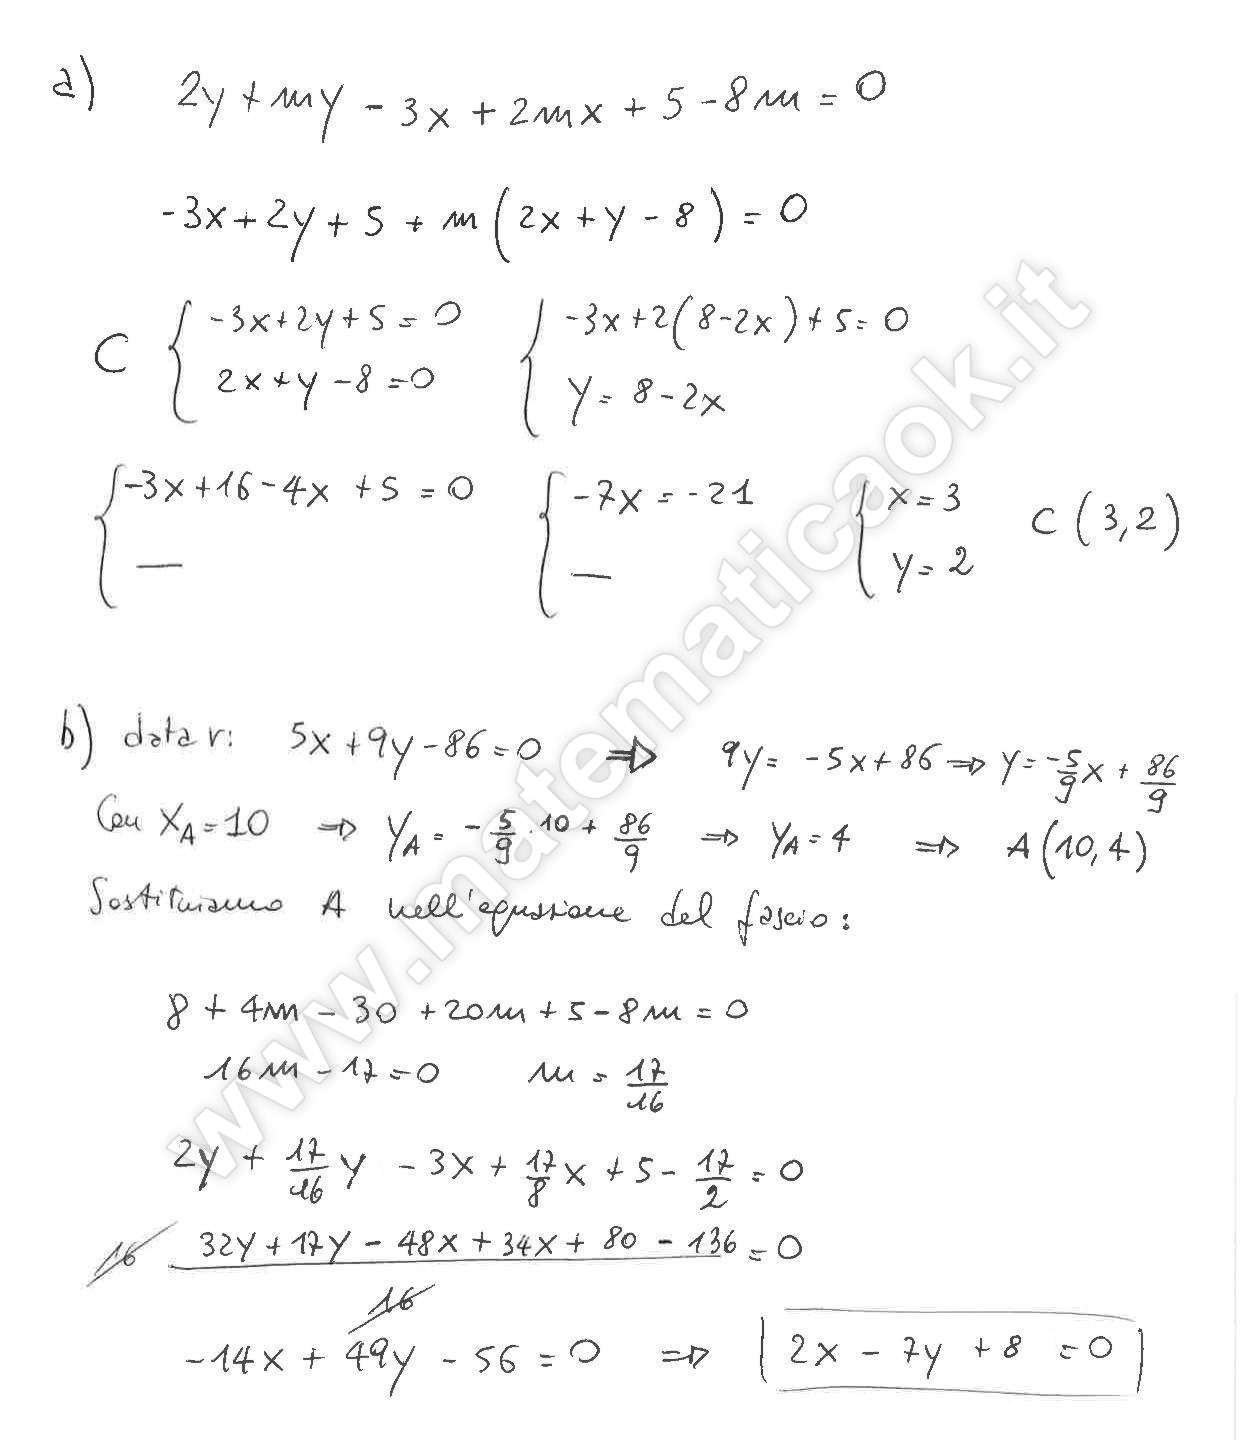 a) 2y + my - 3x + 2mx + 5 - 8m = 0
-3x + 2y + 5 + m ( 2x + y - 8 ) = 0
C { -3x + 2y + 5 = 0 { -3x + 2 ( 8 - 2x ) + 5 = 0
2x + y - 8 = 0 y = 8 - 2x
{ -3x + 16 - 4x + 5 = 0 { -7x = -21 { x = 3 C ( 3, 2 )
— — y = 2
b) data r: 5x + 9y - 86 = 0 ⇒ 9y = -5x + 86 ⇒ y = -5/9 x + 86/9
Con xA = 10 ⇒ yA = -5/9 · 10 + 86/9 ⇒ yA = 4 ⇒ A ( 10, 4 )
Sostituiamo A nell'equazione del fascio:
8 + 4m - 30 + 20m + 5 - 8m = 0
16m - 17 = 0 m = 17/16
2y + 17/16 y - 3x + 17/8 x + 5 - 17/2 = 0
16 32y + 17y - 48x + 34x + 80 - 136 = 0
16
-14x + 49y - 56 = 0 ⇒ 2x - 7y + 8 = 0
www.matematicaok.it